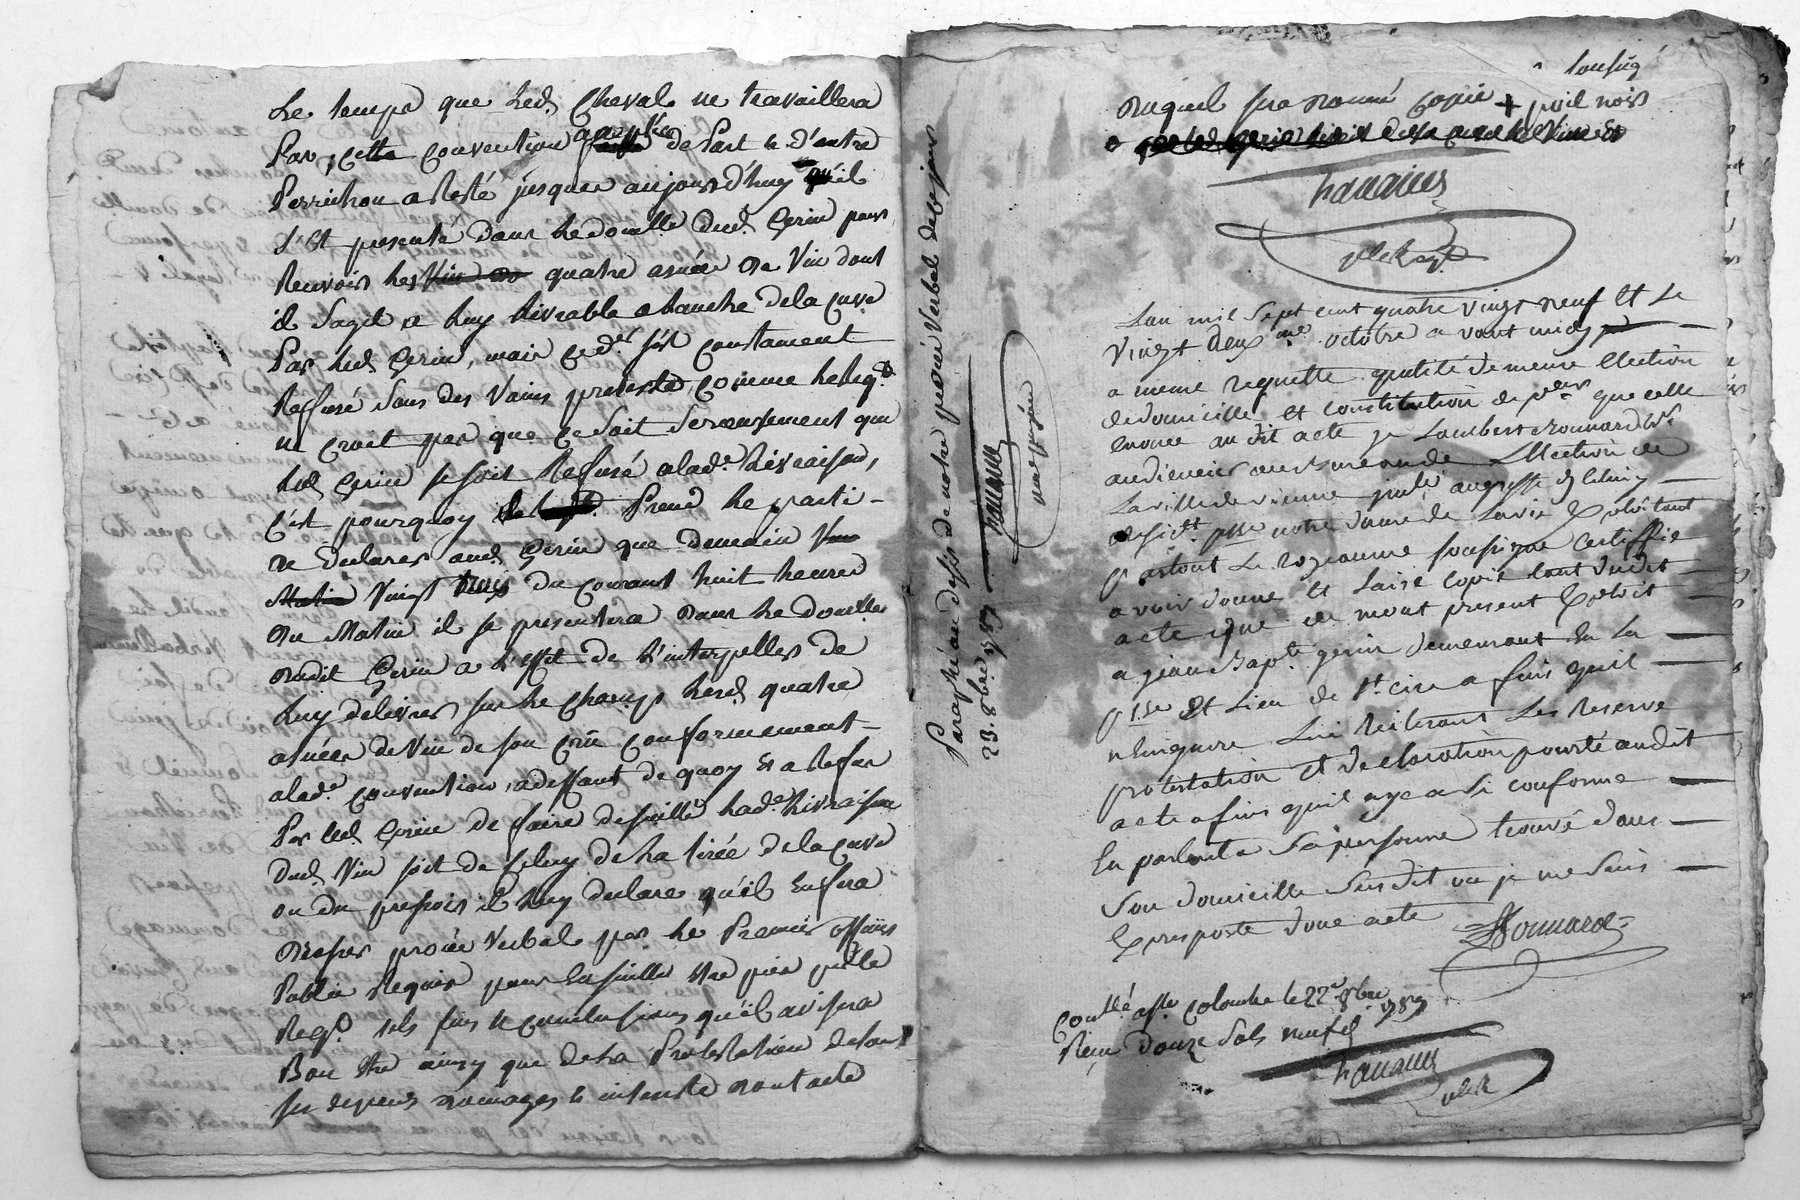 Le temps que led. Cheval ne travaillera
Par cette convention acceptée de Part & d'autre
Perrichon a Resté jusques aujourd'huy qu'il
s'est presenté dans Le domille dud. Gerin pour
Recevoir les quatre asnées de Vin dont
il Sagit a Luy Livrable a hanche de la cuve
Par led. Gerin, mais ced.er s'est constament
Reffusé sous des Vains pretexte comme le Reqt.
ne croit pas que ce soit serieusement que
led. Gerin se soit Reffusé a lad.e Livraison,
C'est pourquoy Prend le parti
de declarer aud. Gerin que demain
Vingt trois du courant huit heures
du Matin il se presentera dans le domille
dudit Gerin a L'effet de L'interpeller de
Luy delivrer sur le champ lesd. quatre
asnées de Vin de son crû conformement
a lad.e convention, a deffaut de quoy et a Refus
Par led. Gerin de faire desuitte lad.e Livraison
dud. Vin soit de celuy de La tirée de la cuve
ou du pressoir il Luy declare qu'il En fera
dresser procés Verbal par le Premier officier
Public Requis pour En suitte être pris par le
Reqt. tels fins & conclusions qu'il avisera
Bon être ainsy que de La Protestation de tous
ses depens domages & interests dont acte
Paraphé au desir de notre procés Verbal de ce jour
23. 8bre 1789
soussigné
duquel sera donné copie + poil noir
Lan mil Sept cent quatre vingt neuf Et Le
vingt deux me octobre a vant midy
a meme requette qualité de meme Election
de domicille et constitution de p.eur que celle
enoncé au dit acte je Lambert Bonnard h.er
audiencier en Election de
La ville de vienne
notre dame de Lavie Exploitant
p artout Le royeaume soussigne certiffie
a voir donne Et Laisé copie tant dudit
acte que de mont present Exploit
a jean Bapt. gerin demeurant En La
p.sse Et Lieu de st. cire a fins quil
n En ignore Lui Reiterant Les Reserve
protestation et declaration porté audit
acte a fins quil aye a si conforme
En parlent a sa personne trouvé dans
Son domicille Susdit ou je me suis
Exprès porte donc acte
Bonnard
Conllé a ste. colombe le 22e 8bre 1789
Reçu douze sols neuf d.